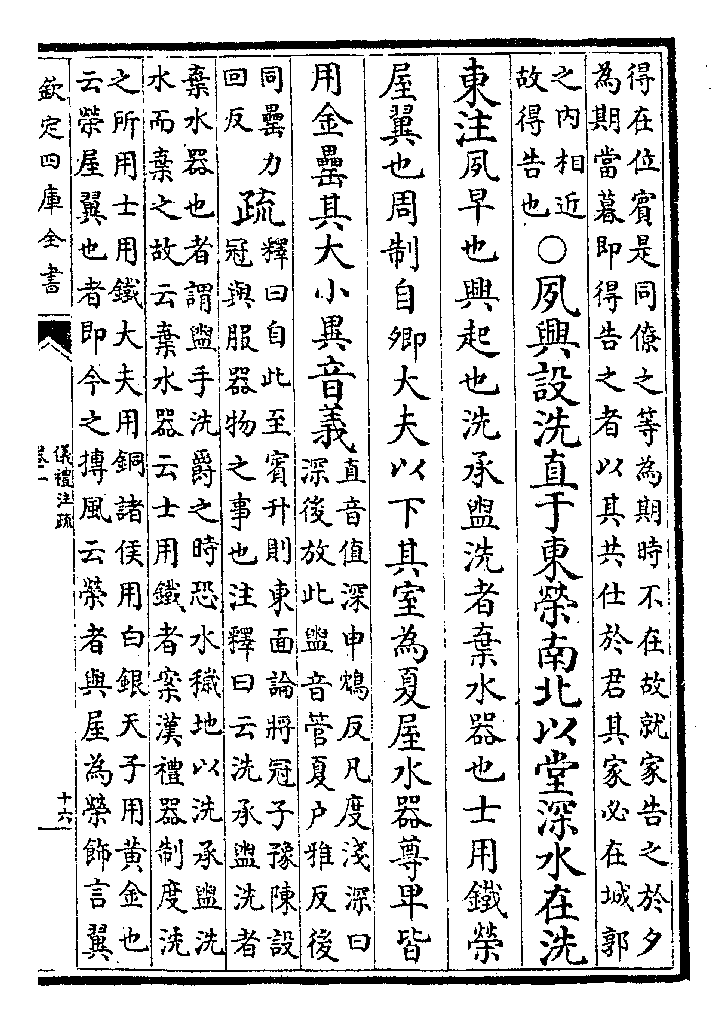 得在位賓是同僚之等為期時不在故就家告之於夕
為期當暮即得告之者以其共仕於君其家必在城郭
之内相近
故得告也
○夙興設洗直于東榮南北以堂深水在洗
東注夙早也興起也洗承盥洗者棄水器也士用鐵榮
屋翼也周制自卿大夫以下其室為夏屋水器尊卑皆
用金罍其大小異音義
直音值深申鴆反凡度淺深曰
深後放此盥音管夏户雅反後
同罍力
回反
疏
釋曰自此至賓升則東面論將冠子豫陳設
冠與服器物之事也注釋曰云洗承盥洗者
棄水器也者謂盥手洗爵之時恐水穢地以洗承盥洗
水而棄之故云棄水器云士用鐵者案漢禮器制度洗
之所用士用鐵大夫用銅諸侯用白銀天子用黄金也
云榮屋翼也者即今之摶風云榮者與屋為榮飾言翼
欽定四庫全書
儀禮注疏
卷一
十六